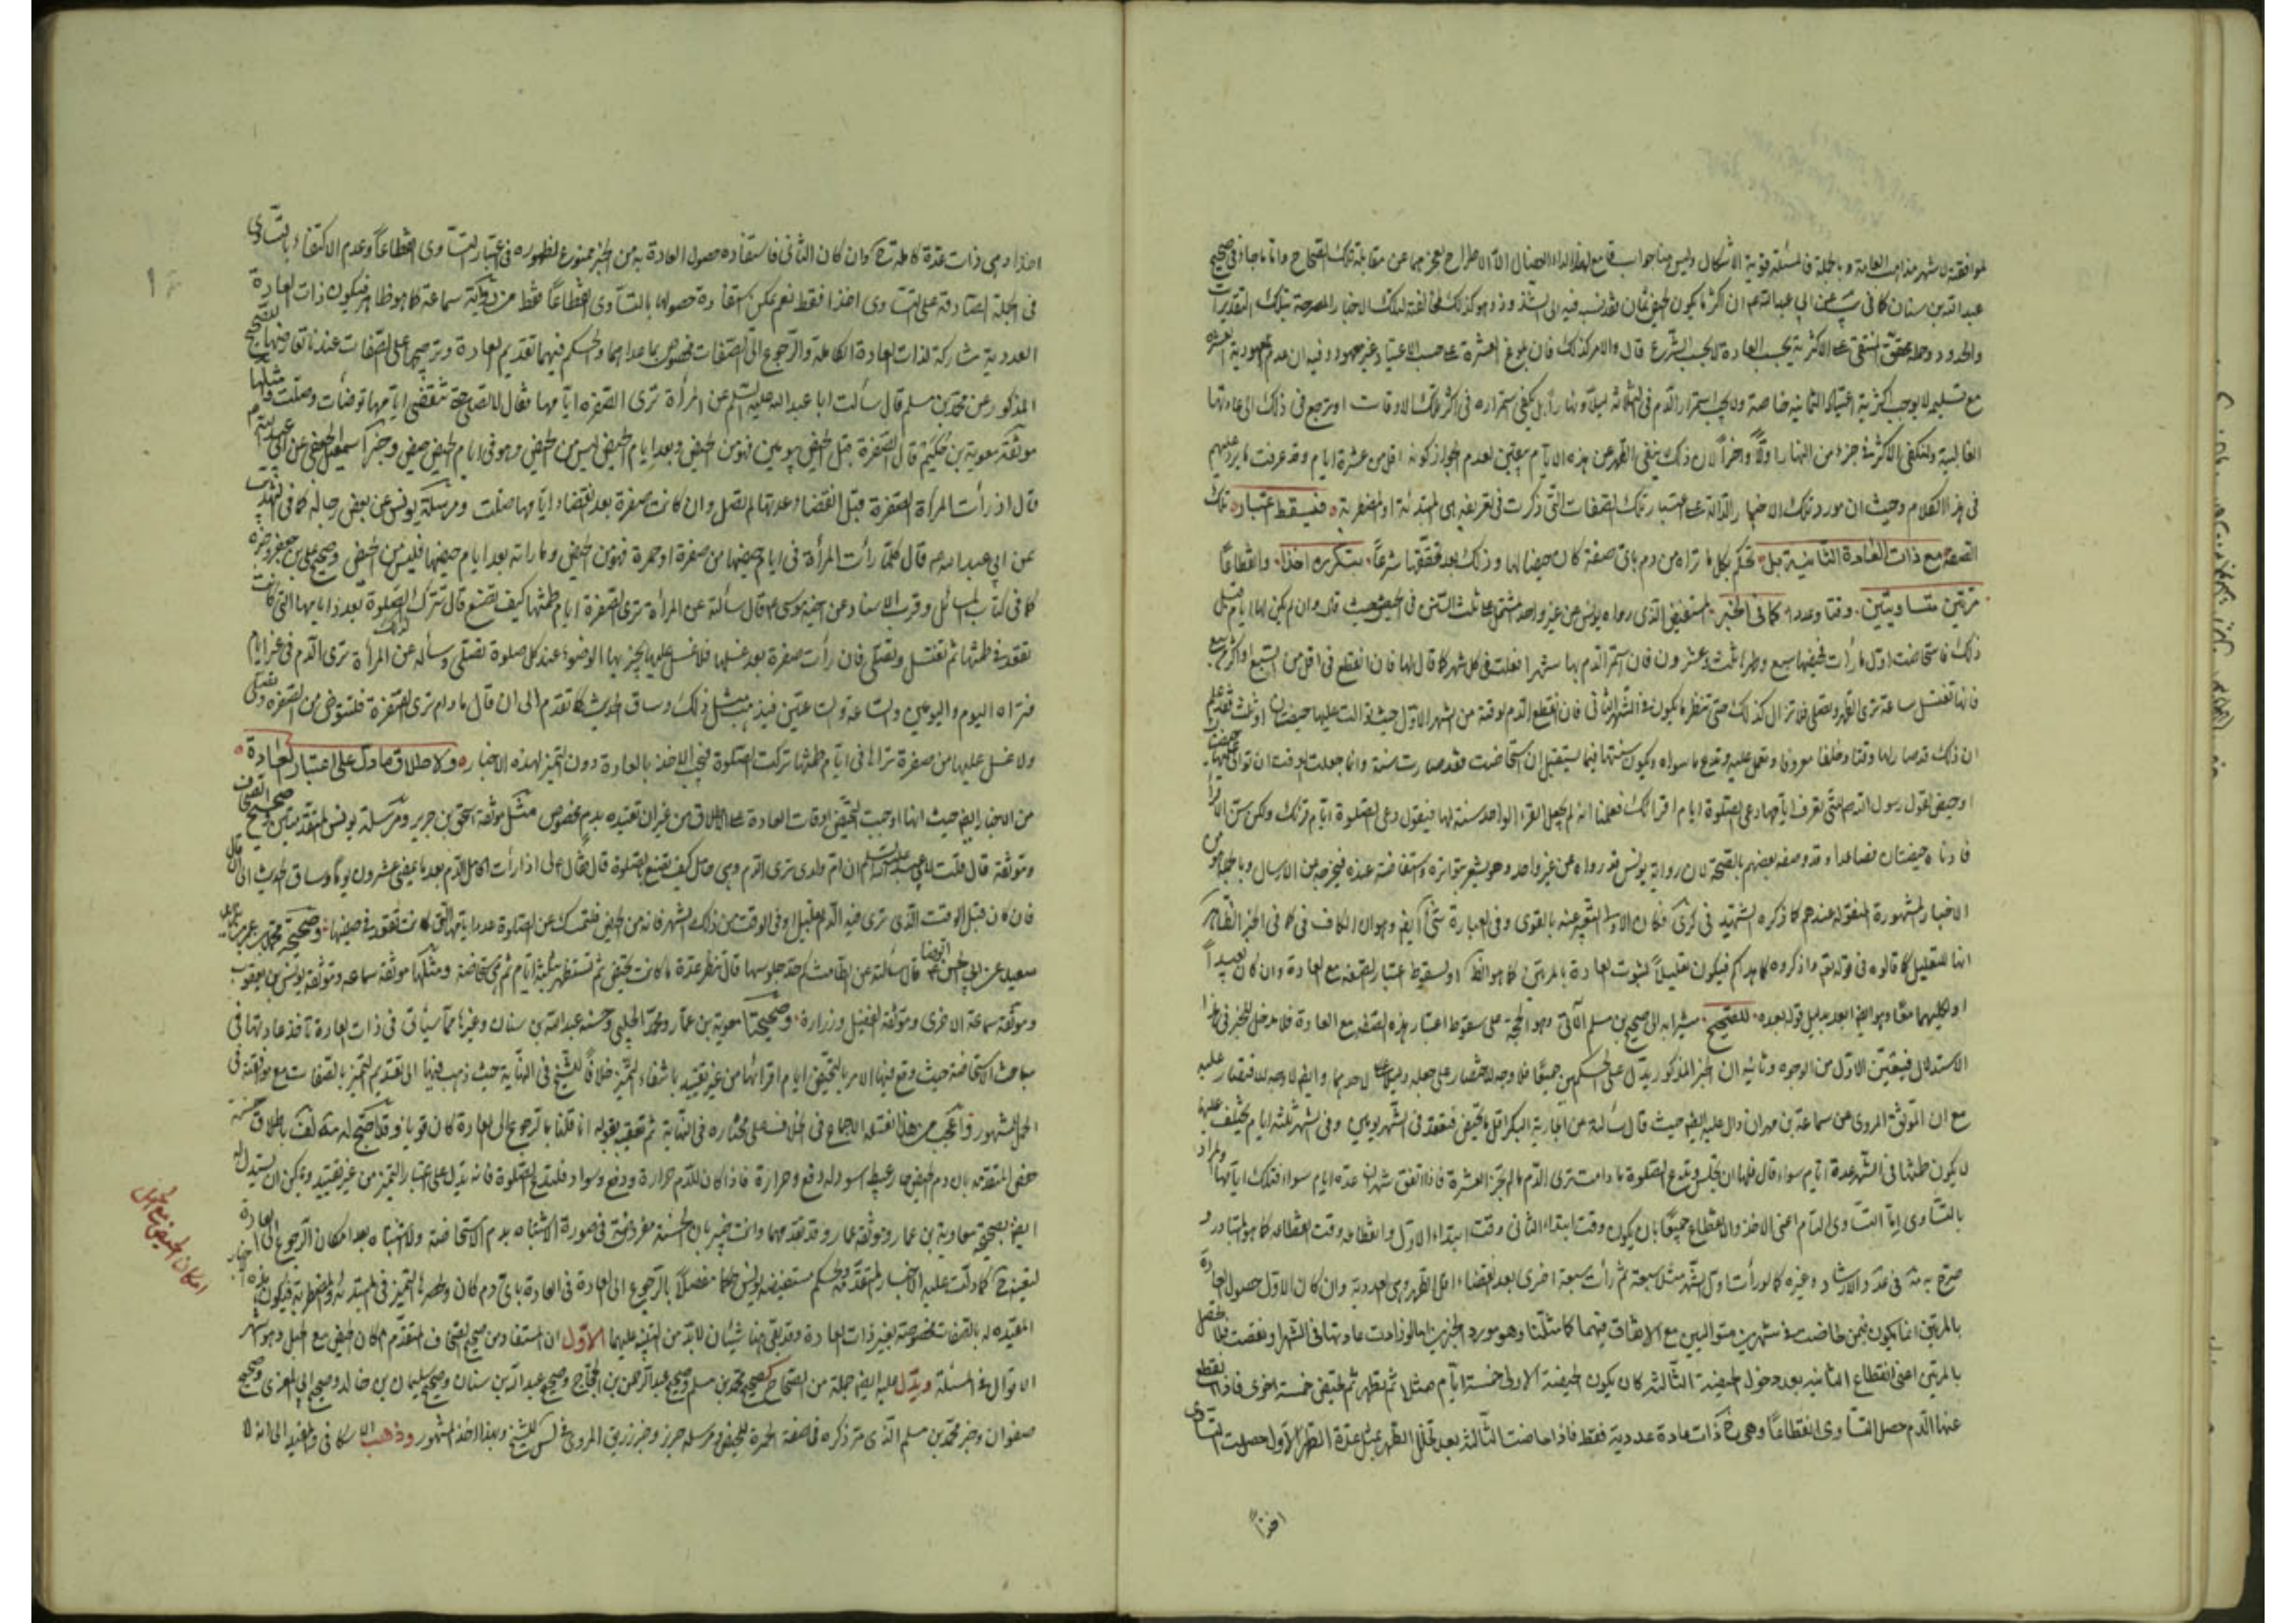 لموافقته لاشهر مذاهب العامة وبالجملة فالمسئلة قوية الاشكال وليس هنا جواب قاطع لهذا الداء العضال الا الاطراح لعجزهما عن مقابلة تلك الصحاح واما ما جاء في صحيح
عبد الله بن سنان كما في يب عن ابي عبد الله ع ان اكثر ما يكون الحيض ثمان فقد نسب فيه الى الشذوذ وهو كذلك لمخالفته لتلك الاخبار المصرحة بتلك التقديرات
والحدود وحمله محقق المنتقى على الاكثرية بحسب العادة لا بحسب الشرع قال والامر كذلك فان بلوغ العشرة على حسب الاعتياد غير معهود وفيه ان عدم معهودية العشرة
مع تسليمه لا يوجب اكثرية اعتياد الثمانية خاصة ولا يجب استمرار الدم في الثلاثة ليلا ونهارا بل يكفي استمراره في اكثر تلك الاوقات او ترجع في ذلك الى عادتها
الغالبية ولا تكفي الاكثر في جزء من النهار اولا واخرا لان ذلك ينفي الطهر عن هذه الايام بيقين لعدم الجواز كونه اقل من عشرة ايام وقد عرفت ما يرد عليهم
في هذا الكلام وحيث ان مورد تلك الاخبار الدالة على اعتبار تلك الصفات التي ذكرت في تعريفه هي المبتدئة او المضطربة فيسقط اعتبار تلك
الصفة مع ذات العادة الثابتة بل تحكم بكل ما تراه من دم باي صفة كان حيضا لها وذلك بعد تحققها شرعا بتكرره اخذا وانقطاعا
مرتين متساويتين وقتا وعددا كما في الخبر المستفيض الذي رواه يونس عن غير واحد المشتمل على ثلث السنن في الحيض حيث قال وان لم يكن لها ايام قبل
ذلك فاستحاضت اول ما رأت فحيضها سبع وطهرها ثلث وعشرون فان استمر الدم بها شهرا فعلت في كل شهر كما قال لها فان انقطع في اقل من السبع او اكثر من سبع
فانها تغتسل ساعة ترى الطهر وتصلي فلا تزال كذلك حتى تنظر ما يكون في الشهر الثاني فان انقطع الدم لوقته من الشهر الاول حتى توالت عليها حيضتان او ثلث فقد علم
ان ذلك قد صار لها وقتا وخلقا معروفا وتعمل عليه وتدع ما سواه ويكون سنتها فيما يستقبل ان استحاضت فقد صارت سنة وانما جعلت الوقت ان توالى عليها حيضتان
او حيض لقول رسول الله ص للتي تعرف ايامها دعي الصلوة ايام اقرائك فعلمنا انه لم يجعل القرء الواحد سنة لها فيقول دعي الصلوة ايام قرئك ولكن سن الاقرا
فادناه حيضتان فصاعدا وقد وصفه بعضهم بالصحة لان رواية يونس قد رواه عن غير واحد وهو يشير بتواتره واستفاضته عنده فيخرجه عن الارسال وبالجملة هو من
الاخبار المشهورة المنقولة عندهم كما ذكره الشهيد في كرى فكان الاولى التعبير عنه بالقوى وفي العبارة شيء آخر ايضا وهو ان الكاف في كما في الخبر الظاهر
انها للتعليل كما قالوه في قوله تعالى واذكروه كما هداكم فيكون تعليلا لثبوت العادة بالمرتين كما هو الظ او لسقوط اعتبار الصفة مع العادة وان كان بعيدا
او لكليهما معا وهو ايضا ابعد بدليل قوله بعده للصحيح مشيرا به الى صحيح بن مسلم الآتي وهو الحجة على سقوط اعتبار هذه الصفة مع العادة فلا مدخل للخبر في هذا
الاستدلال فيتعين الاول من الوجوه وثانيه ان الخبر المذكور يدل على الحكمين جميعا فلا وجه للاقتصار على جعله دليلا على احدهما وايضا لا وجه للاقتصار عليه
مع ان الموثق المروي عن سماعة بن مهران دال عليه ايضا حيث قال سألته عن الجارية البكر اول ما تحيض فتقعد في الشهر يومين وفي الشهر ثلثة ايام يختلف عليها
لا يكون طمثها في الشهر عدة ايام سواء قال فلها ان تجلس وتدع الصلوة ما دامت ترى الدم ما لم تجز العشرة فاذا اتفق شهران عدة ايام سواء فتلك ايامها والمراد
بالتساوي اما التساوي التام اعني الاخذ والانقطاع جميعا بان يكون وقت ابتداء الثاني وقت ابتداء الاول وانقطاعه وقت انقطاعه كما هو المتبادر و
صرح به في والارشاد وغيره كما لو رأت اول الشهر مثلا سبعة ثم رأت سبعة اخرى بعد انقضاء اقل الطهر وهي العددية وان كان الاول حصول العادة
بالمرتين انما يكون فيمن حاضت في شهرين متواليين مع الاتفاق فيهما كما مثلنا وهو مورد الخبرين اما لو زادت عادتها في الشهر او نقصت فلا يحصل
بالمرتين اعني انقطاع الثانية بعد دخول الحيضة الثالثة كان يكون الحيضة الاولى خمسة ايام مثلا ثم تطهر ثم تحيض خمسة اخرى فاذا انقطع
عنها الدم حصل التساوي انقطاعا وهي ح ذات عادة عددية فقط فاذا حاضت الثالثة بعد تخلل الطهر بمثل عدة الطهر الاول حصلت التساوي
اخذا
اخذا وهي ذات عدة كاملة ح وان كان الثاني فاستفاده حصول العادة به من الخبر ممنوع لظهوره في اعتبار التساوي انقطاعا وعدم الاكتفاء بالتساوي
في الجملة الصادقة على التساوي اخذا فقط نعم يمكن استفادة حصولها بالتساوي انقطاعا فقط من موثقة سماعة كما هو ظاهر فيكون ذات العادة
العددية مشاركة لذات العادة الكاملة والرجوع الى الصفات مخصوص بما عداهما والحكم فيهما تقديم العادة وترجيحها على الصفات عند تعارضهما للصحيح
المذكور عن محمد بن مسلم قال سألت ابا عبد الله عليه السلم عن المرأة ترى الصفرة ايامها فقال لا تصلي حتى تنقضي ايامها توضأت وصلت ومثلها
موثقة معوية بن حكيم قال الصفرة قبل الحيض بيومين فهو من الحيض وبعد ايام الحيض ليس من الحيض وهو في ايام الحيض حيض وخبر اسمعيل الجعفي عن ابي عبد الله ع
قال اذا رأت المرأة الصفرة قبل انقضاء عدتها لم تصل وان كانت صفرة بعد انقضاء ايامها صلت ومرسلة يونس عن بعض رجاله كما في التهذيب
عن ابي عبد الله ع قال كلما رأت المرأة في ايام حيضها من صفرة او حمرة فهو من الحيض وما رأته بعد ايام حيضها فليس من الحيض وصحيح علي بن جعفر وخبره
كما في كتاب المسائل وقرب الاسناد عن اخيه موسى ع قال سألته عن المرأة ترى الصفرة ايام طمثها كيف تصنع قال تترك لذلك الصلوة بعدد ايامها التي كانت
تقعد في طمثها ثم تغتسل وتصلي فان رأت صفرة بعد غسلها فلا غسل عليها يجزيها الوضوء عند كل صلوة تصلي وسألته عن المرأة ترى الدم في غير ايام
فتراه اليوم واليومين والساعة والساعتين فيذهب مثل ذلك وساق الحديث كما تقدم الى ان قال ما دام ترى الصفرة فلتتوضى من الصفرة وتصلي
ولا غسل عليها من صفرة تراها في ايام طمثها تركت الصلوة فيجب الاخذ بالعادة دون التميز لهذه الاخبار ولاطلاق ما دل على اعتبار العادة
من الاخبار ايضا حيث انها اوجبت التحيض اوقات العادة على الاطلاق من غير ان تقيده بدم مخصوص مثل موثقة اسحق بن جرير ومرسلة يونس المتقدمتين وصحيح الصحاف
وموثقة قال قلت لابي عبد الله عليه السلم ان ام ولدي ترى الدم وهي حامل كيف تصنع بالصلوة قال فقال لي اذا رأت الحامل الدم بعد ما يمضي عشرون يوما وساق الحديث الى ان قال
فان كان قبل الوقت الذي ترى فيه الدم بقليل او في الوقت من ذلك الشهر فانه من الحيض فلتمسك عن الصلوة عدد ايامها التي كانت تقعد في حيضها وصحيحة محمد بن عمرو بن
سعيد عن ابي الحسن الرضا ع قال سألته عن الطامث كم حد جلوسها قال تنظر عدة ما كانت تحيض ثم تستظهر بثلثة ايام ثم هي مستحاضة ومثلها موثقة سماعه وموثقة يونس بن يعقوب
وموثقة سماعة الاخرى وموثقة الفضيل وزرارة وصحيحتا معوية بن عمار ومحمد الحلبي وحسنه عبد الله بن سنان وغيرها مما سيأتي في ذات العادة تأخذ عادتها في
مباحث الاستحاضة حيث وقع فيها الامر بالتحيض ايام اقرائها من غير تقييد بانتفاء التميز خلافا للشيخ في النهاية حيث ذهب فيها الى تقديم التميز بالصفات مع موافقته في
الجمل المشهور واعجب من هذا نقله الاجماع في الخلاف على مختاره في النهاية ثم تعقيبه بقوله ان قلنا بالرجوع الى العادة كان قويا وقد احتج له باطلاق حسنه
حفص المتقدمه بان دم الحيض حار عبيط اسود له دفع وحرارة فاذا كان للدم حرارة ودفع وسواد فلتدع الصلوة فانه يدل على اعتبار التميز من غير تقييد ويمكن ان يستدل له
ايضا بصحيحة معاوية بن عمار وموثقة عمار وقد تقدمهما وانت خبير بان الحسنة مفروضة في صورة الاشتباه بدم الاستحاضة ولا اشتباه بعد امكان الرجوع الى العادة
لتعينه ح كما دلت عليه الاخبار المتقدمة والحكم مستفيضه يونس حكما مفصلا بالرجوع الى العادة في العادة باي دم كان وحصرها التميز في المبتدئة والمضطربة فيكون هذه الاخبار
المقيده له بالصفات مخصوصة بغير ذات العادة وقد بقي هنا شيئان لا بد من التنبيه عليهما الاول ان المستفاد من صحيح الصحاف المتقدم امكان الحيض مع الحبل وهو اشهر
الاقوال في المسئلة ويدل عليه ايضا جملة من الصحاح كصحيح محمد بن مسلم وصحيح عبد الرحمن بن الحجاج وصحيح عبد الله بن سنان وصحيح سليمان بن خالد وصحيح ابي المعزى وصحيح
صفوان وخبر محمد بن مسلم الذي مر ذكره في صفة الحمرة للحيض ومرسله حريز وخبر زريق المروي في مجالس للشيخ وبهذا اخذ المشهور وذهب الاسكافي والمفيد الى انه لا
امكان الحيض مع الحبل